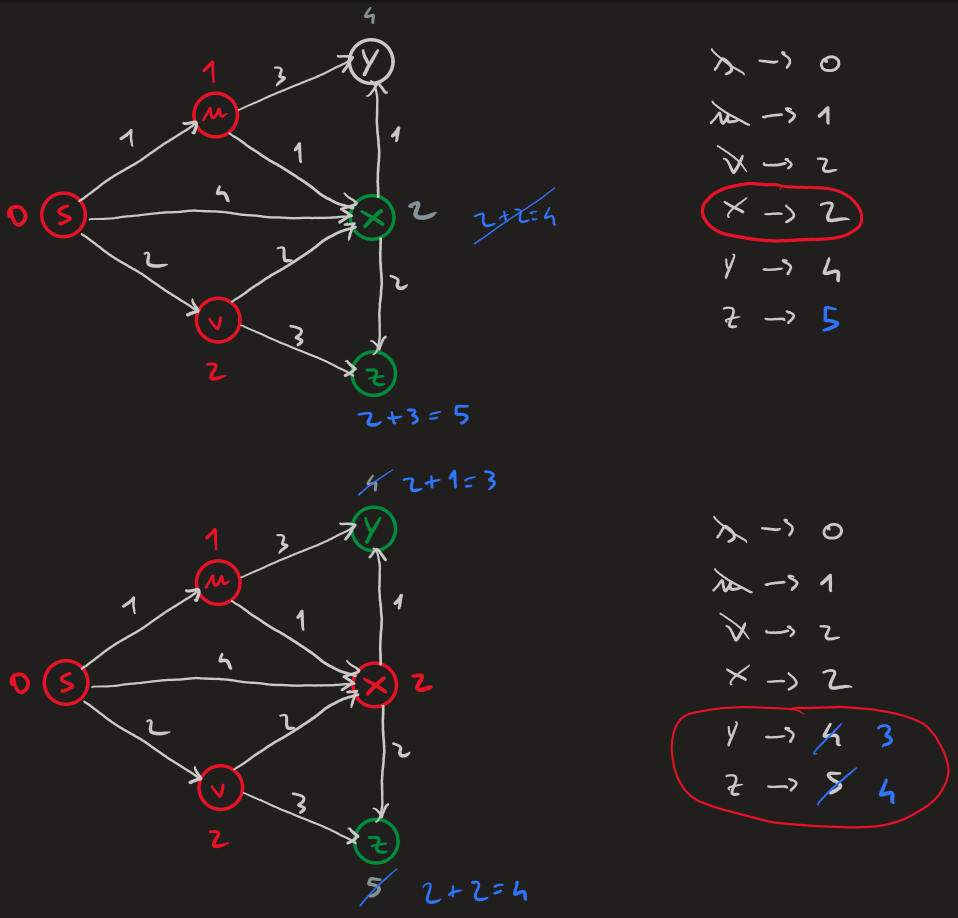 4
1
3
y
u
1
1
1
4
0
s
x
2
2+2=4
2
2
2
v
3
z
2
2+3=5
s → 0
u → 1
v → 2
x → 2
y → 4
z → 5
4 2+1=3
1
3
y
u
1
1
1
4
0
s
x
2
2
2
2
v
3
z
2
5 2+2=4
s → 0
u → 1
v → 2
x → 2
y → 4 3
z → 5 4